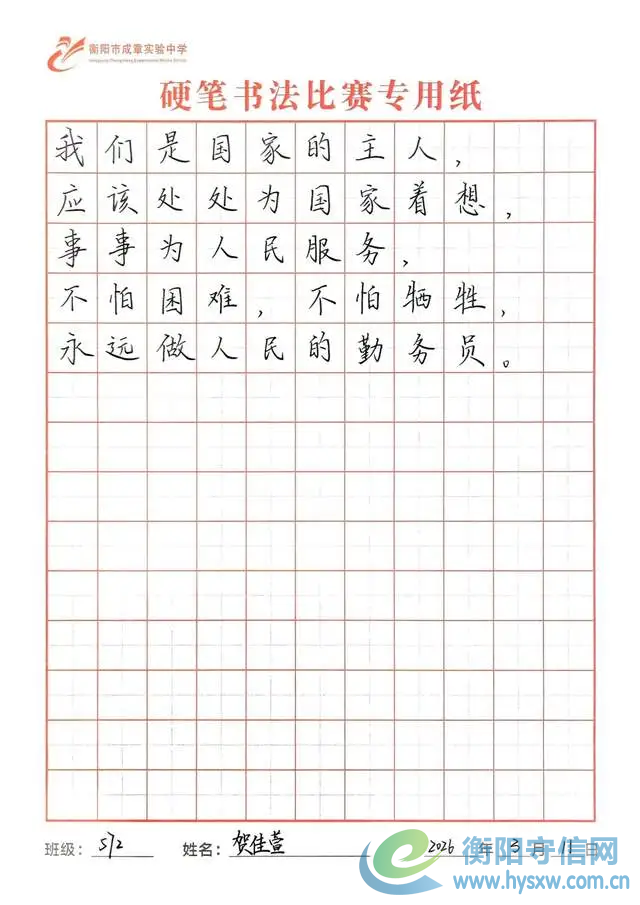 衡阳市成章实验中学
硬笔书法比赛专用纸
我们是国家的主人，
应该处处为国家着想，
事事为人民服务，
不怕困难，不怕牺牲，
永远做人民的勤务员。
班级：512 姓名：贺佳萱 2026年3月11日
衡阳守信网
www.hysxw.com.cn